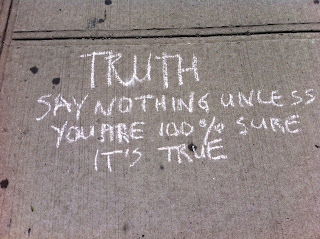 TRUTH
SAY NOTHING UNLESS
YOU ARE 100% SURE
IT'S TRUE